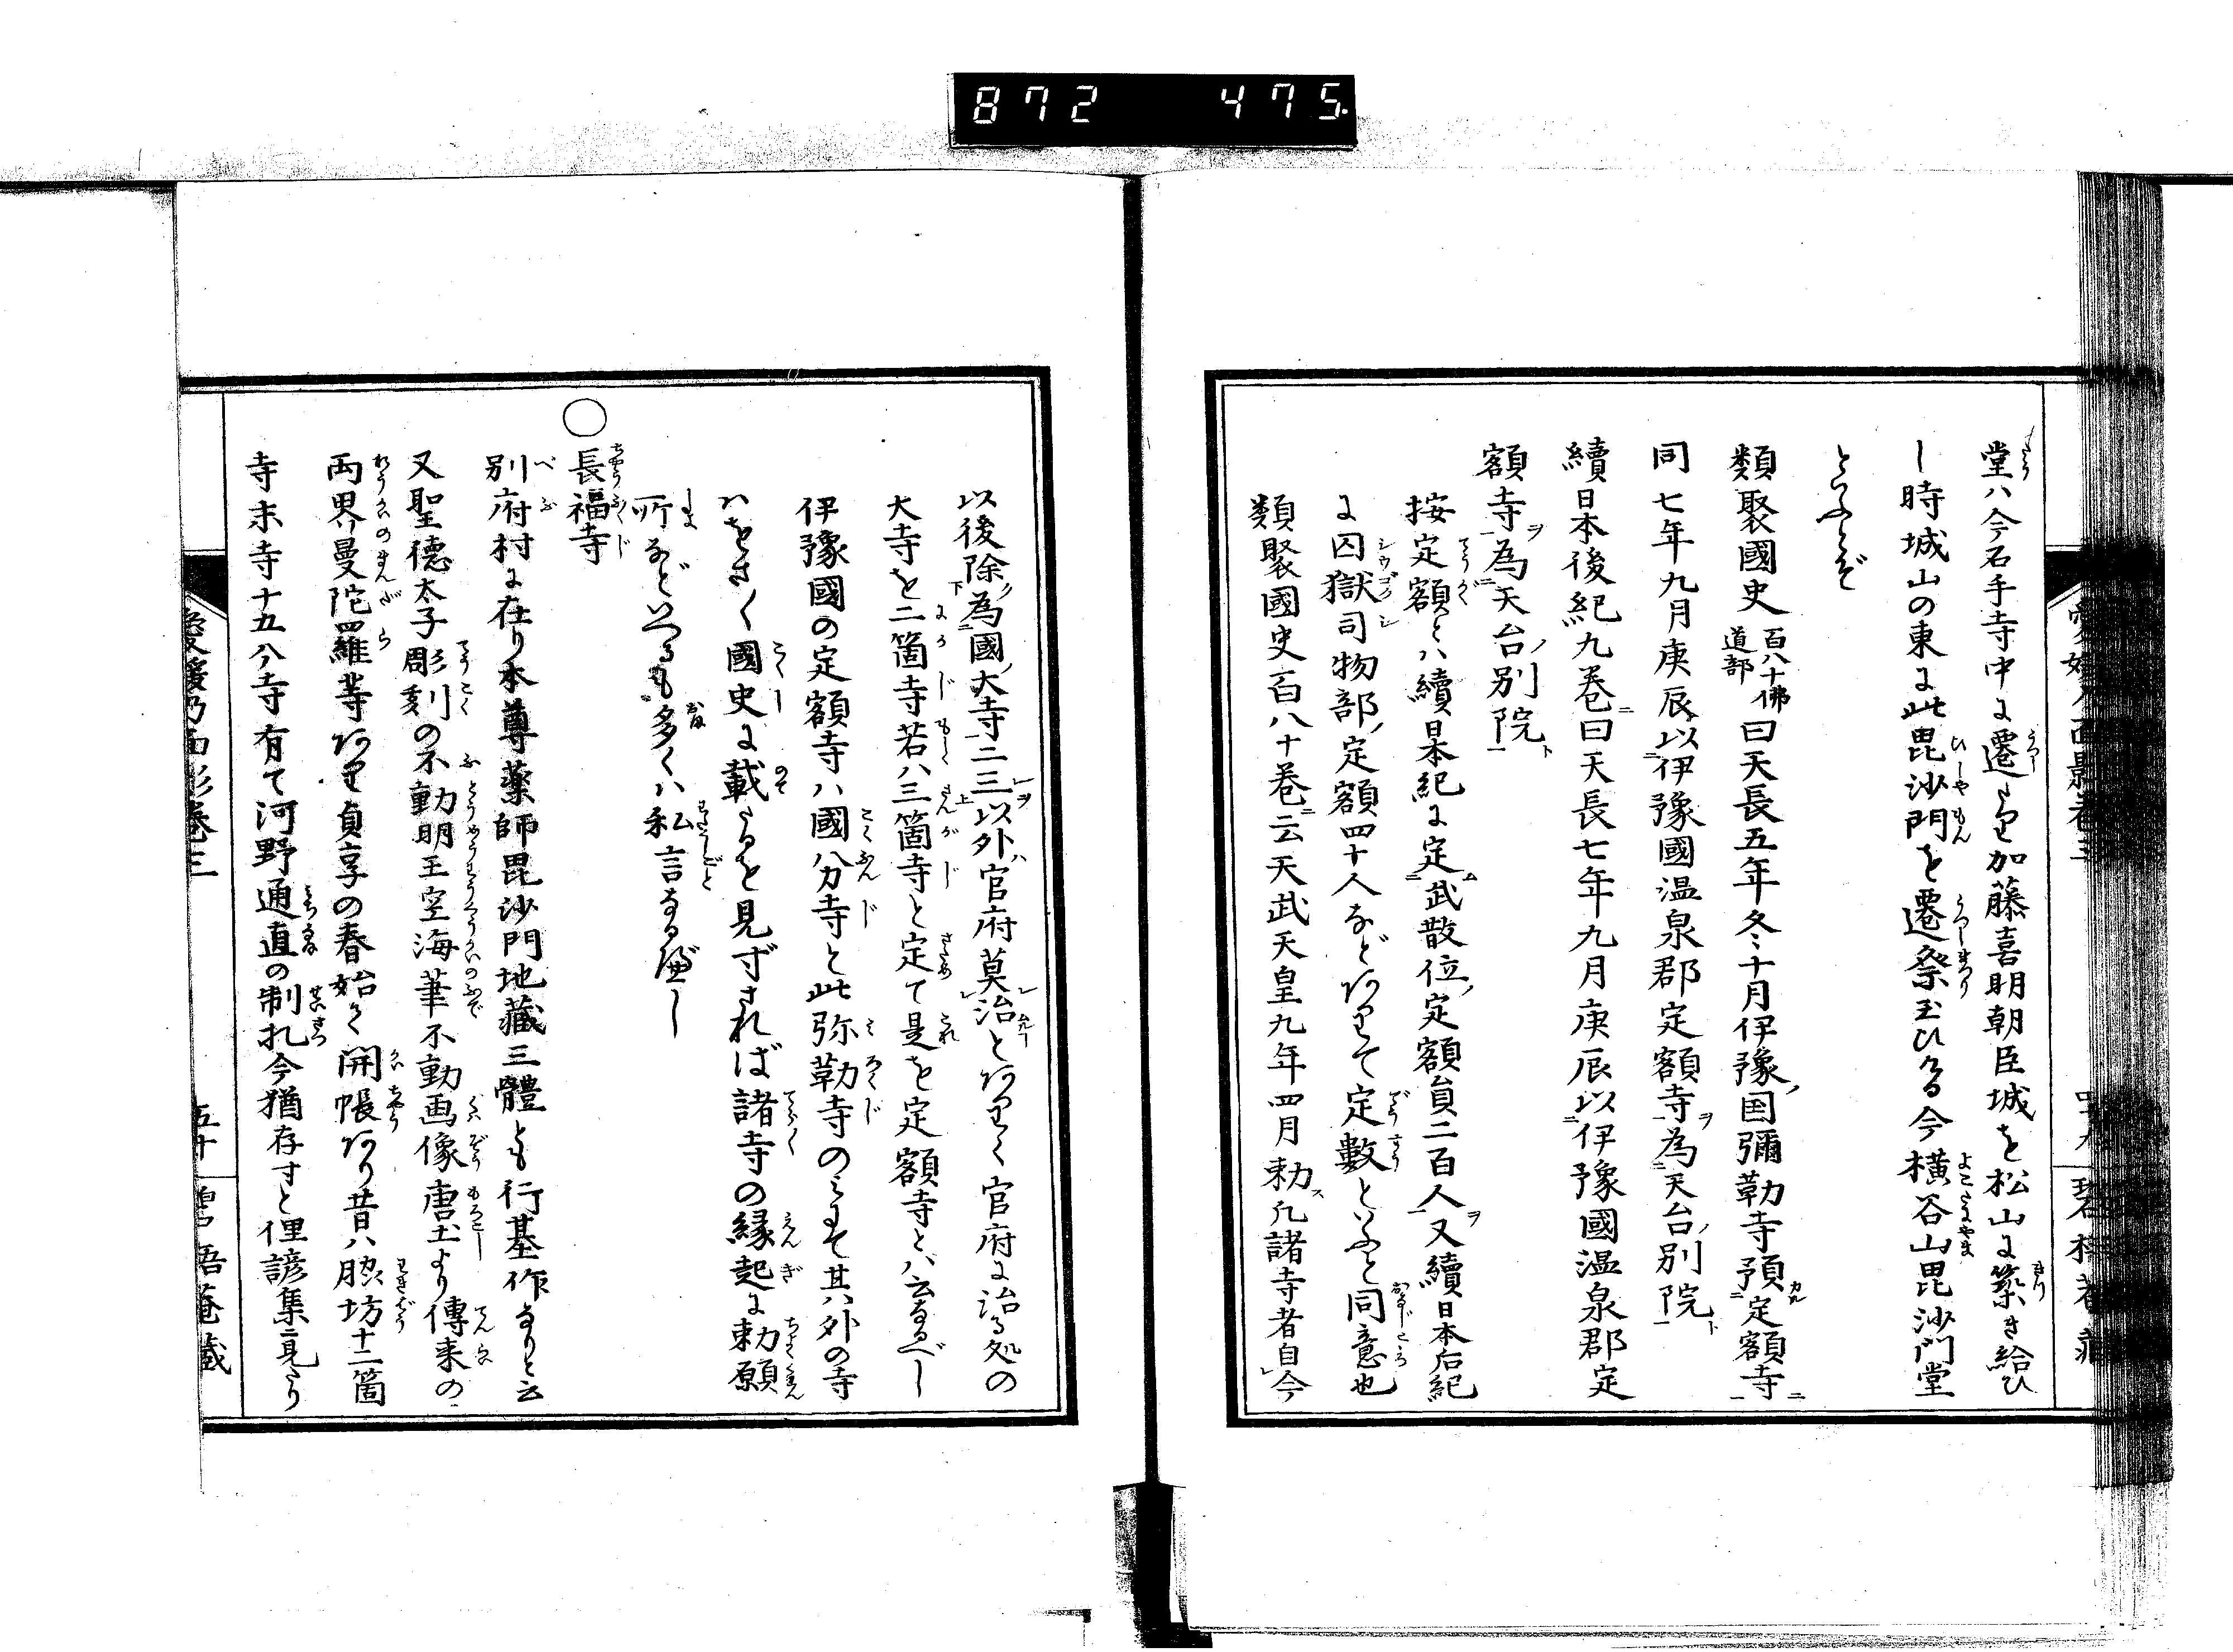 872 475
堂ハ今石手寺中に遷せり加藤喜明朝臣城を松山に築き給ひ
し時城山の東に此毘沙門を遷祭玉ひける今横谷山毘沙門堂
といふとぞ
類聚國史百八十佛道部曰天長五年冬十月伊豫国彌勒寺預定額寺
同七年九月庚辰以伊豫國温泉郡定額寺為天台別院
續日本後紀九巻曰天長七年九月庚辰以伊豫國温泉郡定
額寺為天台別院
按定額とハ續日本紀に定武散位定額員二百人又續日本后紀
に囚獄司物部定額四十人などありて定數といふと同意也
類聚國史百八十巻云天武天皇九年四月勅凡諸寺者自今
以後除為國大寺二三以外官府莫治とありて官府に治る処の
大寺を二箇寺若ハ三箇寺と定て是を定額寺とハ云なるべし
伊豫國の定額寺ハ國分寺と此弥勒寺のみにて其外の寺
ハをさ〱國史に載たるを見ずされば諸寺の縁起に勅願
所などいへるも多くハ私言なるべし
○長福寺
別府村に在り本尊薬師毘沙門地藏三體とも行基作なりと云
又聖徳太子彫刻の不動明王空海筆不動画像唐土より傳来の
両界曼陀羅等あり貞享の春始て開帳あり昔ハ脇坊十二箇
寺末寺十五ケ寺有て河野通直の制札今猶存すと俚諺集ニ見たり
愛媛乃面影巻三
五十
碧梧菴藏